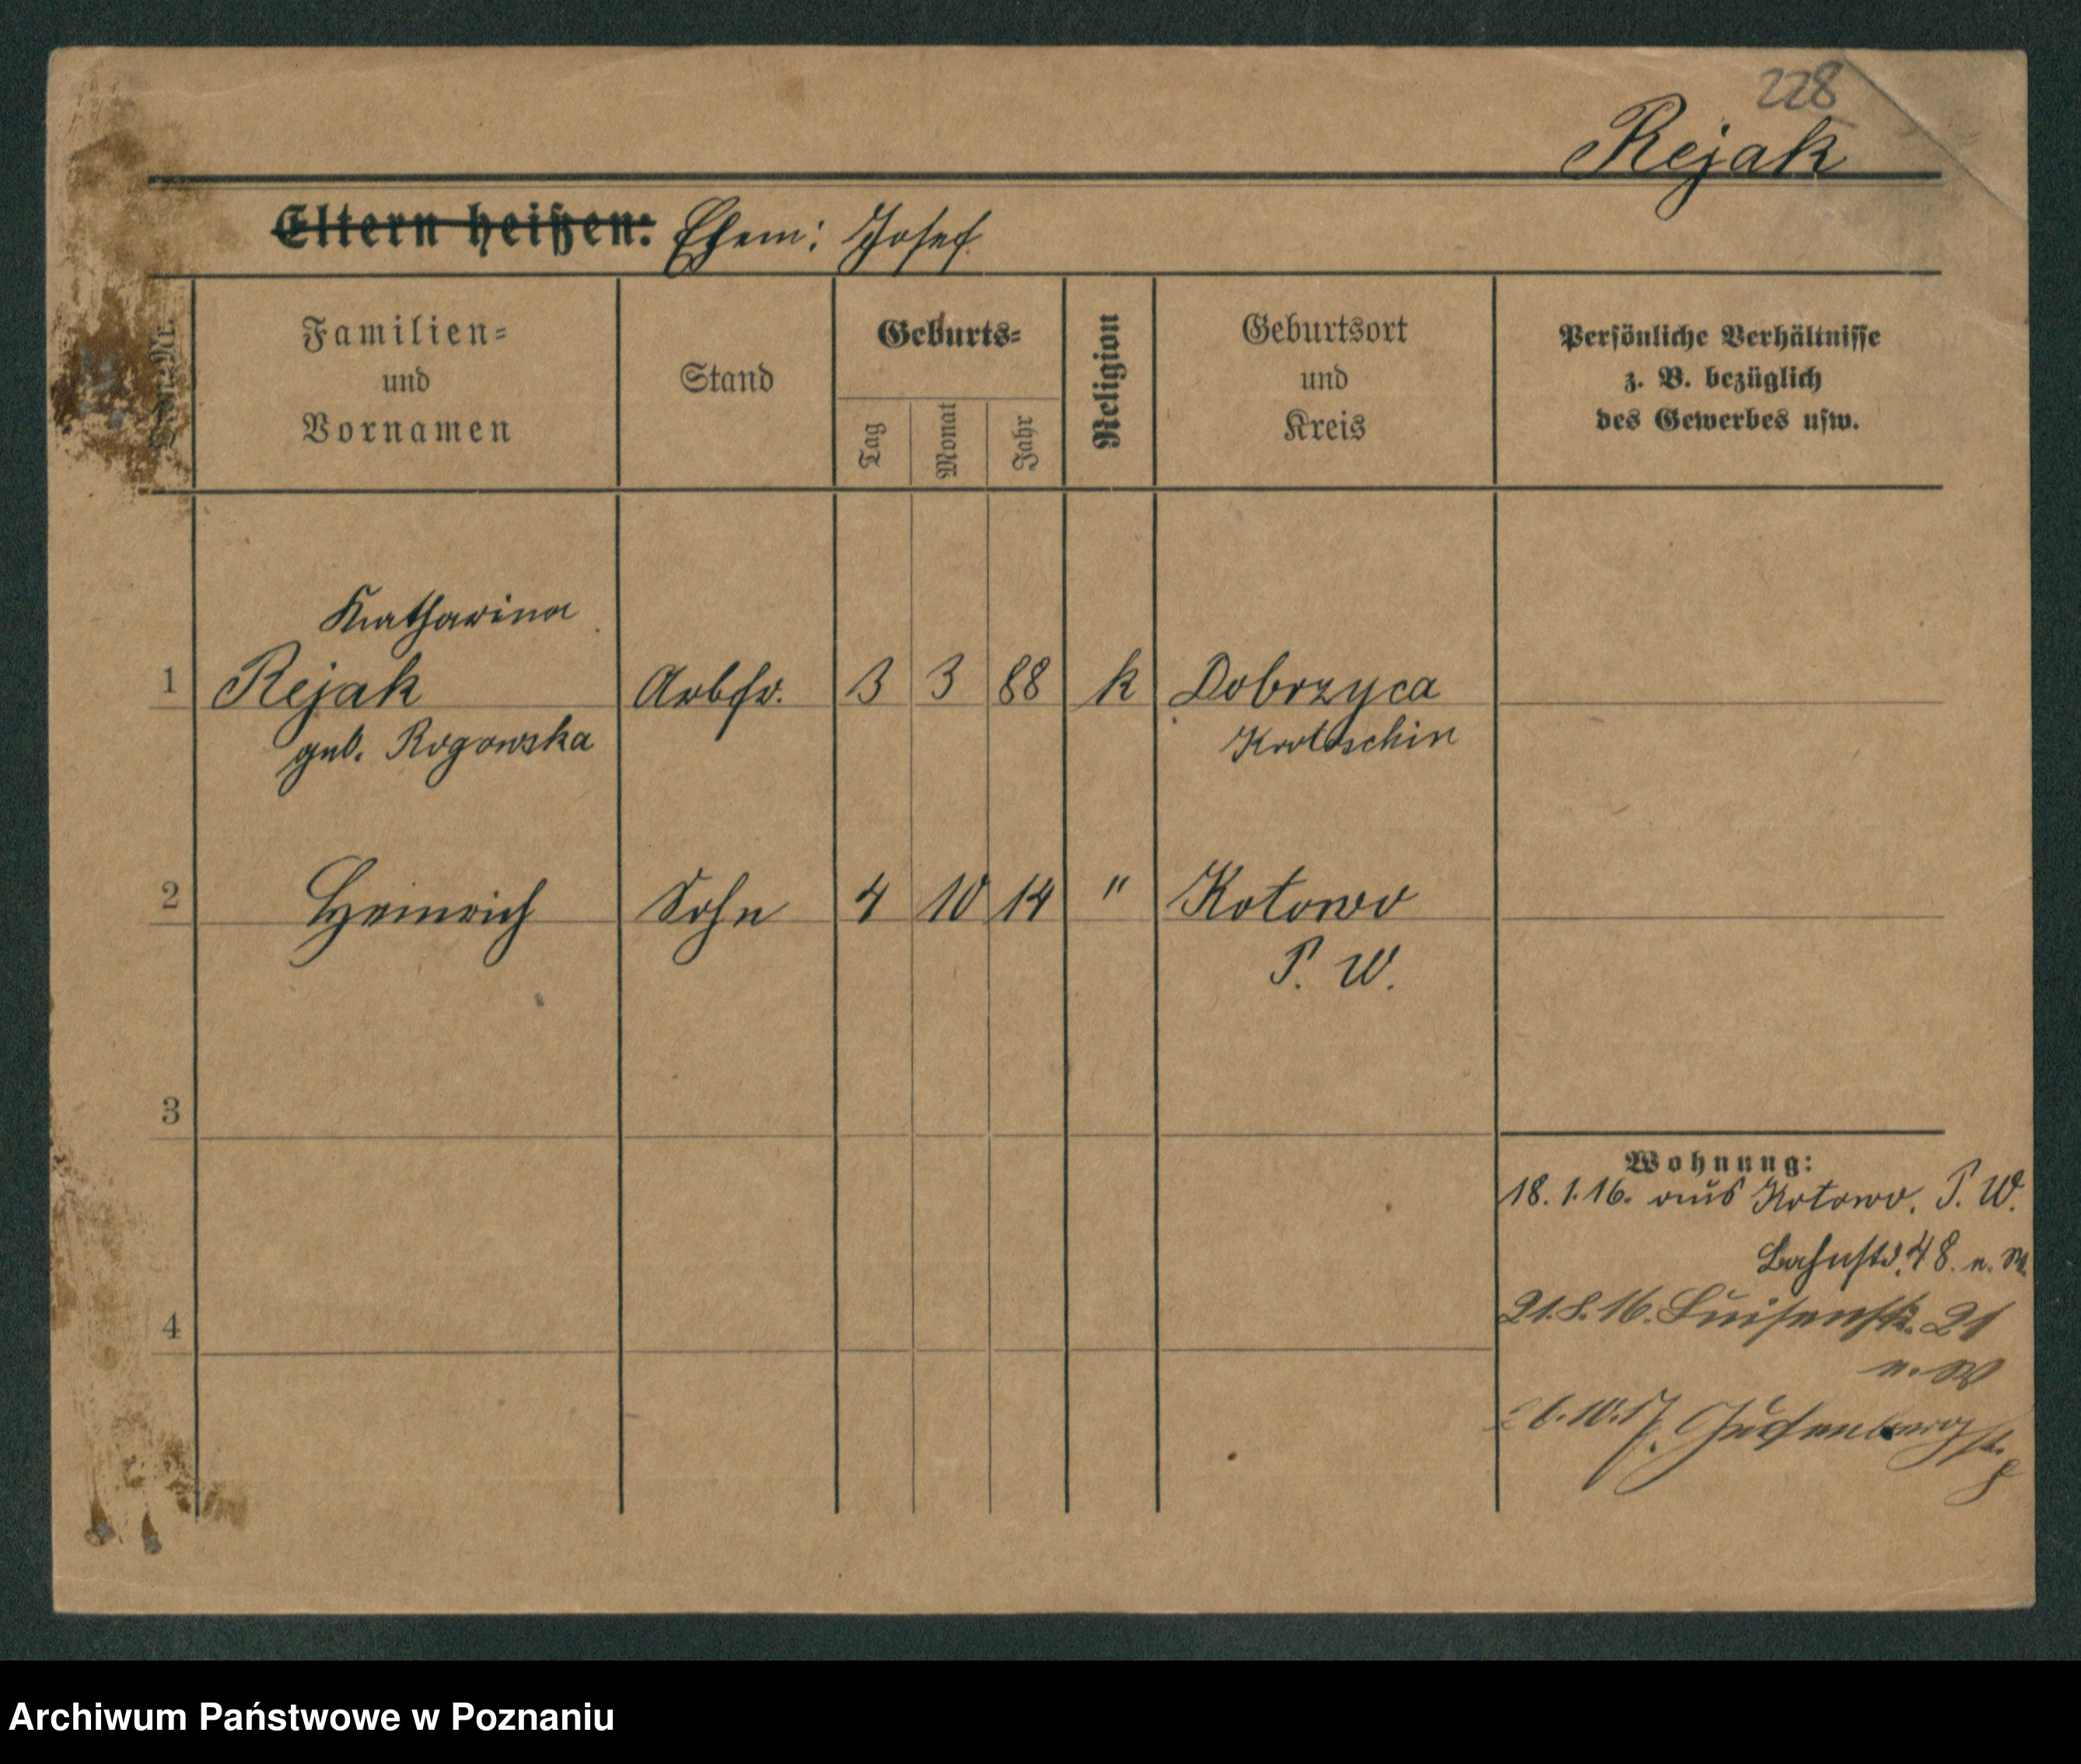 228
Rejak
Eltern heißen: Ehem: Josef.
Familien-
und
Vornamen
Stand
Geburts-
Tag
Monat
Jahr
Religion
Geburtsort
und
Kreis
Persönliche Verhältnisse
z. B. bezüglich
des Gewerbes usw.
Katharina
1 Rejak Arbfr. 3 3 88 k Dobrzyca
geb. Rogowska Krotoschin
2 Heinrich Sohn 4 10 14 " Kotowo
P. W.
3
Wohnung:
18. 1. 16. aus Kotowo. P. W.
Bahnstr. 48. n. W.
21. 8. 16. Luisenstr. 21
4
n. W
26. 10. 17. Gutenbergstr.